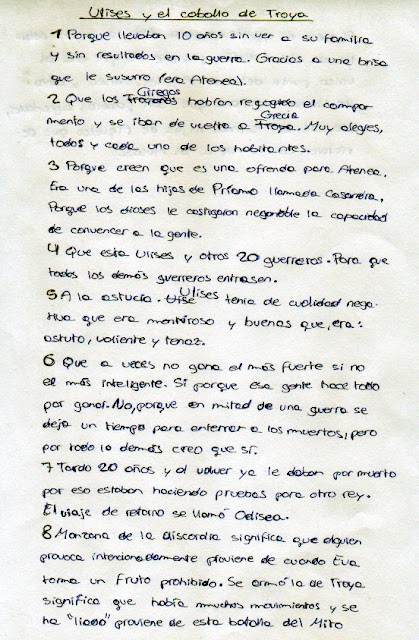 Ulises y el caballo de Troya
1 Porque llevaban 10 años sin ver a su familia
y sin resultados en la guerra. Gracias a una brisa
que le susurro (era Atenea).
Giregos
2 Que los Troyanos habían recogido el campa-
Grecia
mento y se iban de vuelta a Troya. Muy alegres,
todos y cada uno de los habitantes.
3 Porque creen que es una ofrenda para Atenea.
Era una de las hijas de Príamo llamada Casandra,
Porque los dioses le castigaron negandole la capacidad
de convencer a la gente.
4 Que esta Ulises y otros 20 guerreros. Para que
todos los demás guerreros entrasen.
Ulises
5 A la astucia. Ulise tenia de cualidad nega-
tiva que era mentiroso y buenas que, era:
astuto, valiente y tenaz.
6 Que a veces no gana el más fuerte si no
el más inteligente. Si porque esa gente hace todo
por ganar. No, porque en mitad de una guerra se
deja un tiempo para enterrar a los muertos, pero
por todo lo demás creo que sí.
7 Tardo 20 años y al volver ya le daban por muerto
por eso estaban haciendo pruebas para otro rey.
El viaje de retorno se llamó Odisea.
8 Manzana de la discordia significa que alguien
provoca intencionadamente proviene de cuando Eva
toma un fruto prohibido. Se armó la de Troya
significa que había muchos movimientos y se
ha "liado" proviene de esta batalla del Mito